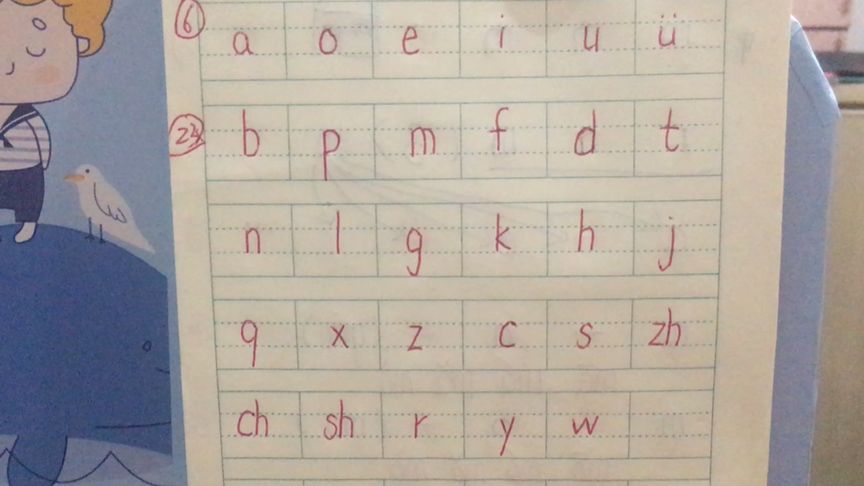 ⑥ a o e i u ü
㉓ b p m f d t
n l g k h j
q x z c s zh
ch sh r y w